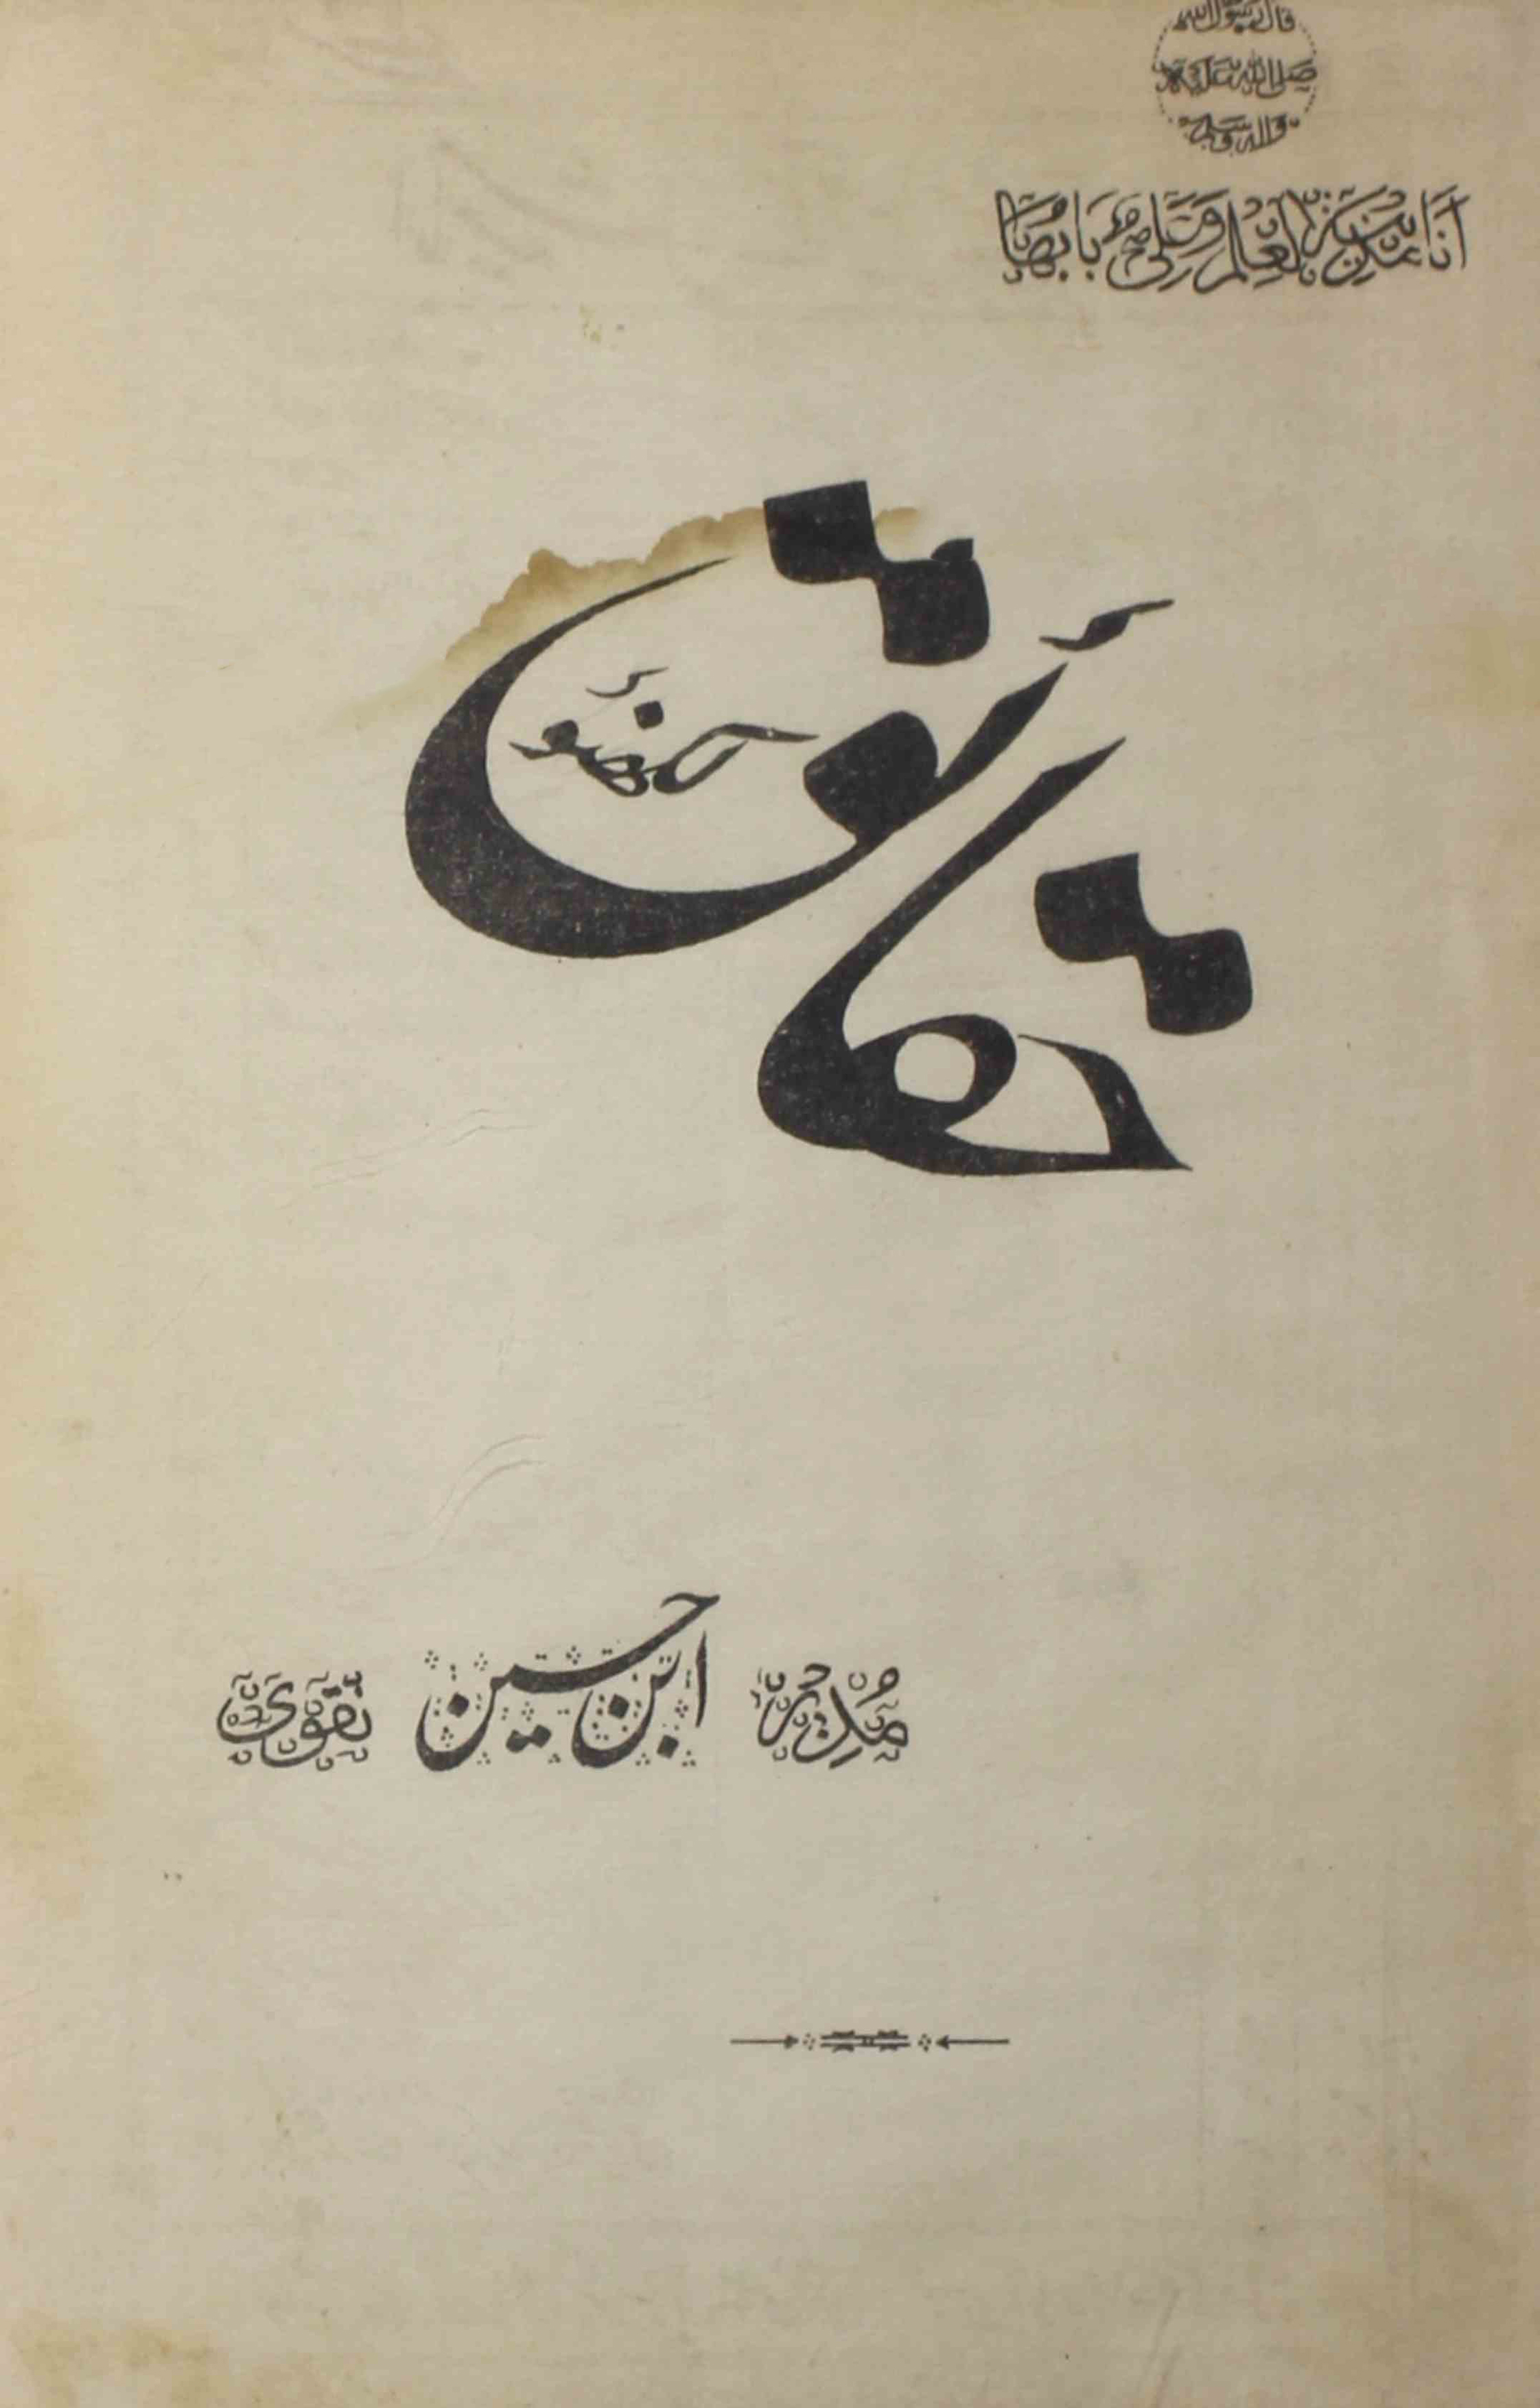 قال رسول الله
صلى الله عليه
واله وسلم
أَنَا مَدِينَةُ الْعِلْمِ وَعَلِيٌّ بَابُهَا
حقائق
لکھنؤ
مدیر ابن حسین نقوی